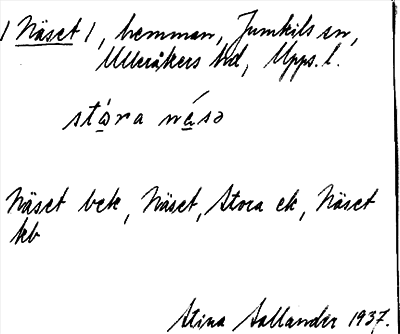 / Näset /, hemman, Jumkils sn,
Ulleråkers hd, Upps. l.
stɷra nɷ́sə
Näset bek, Näset, Stora ek, Näset
kb
Stina Sallander 1937.